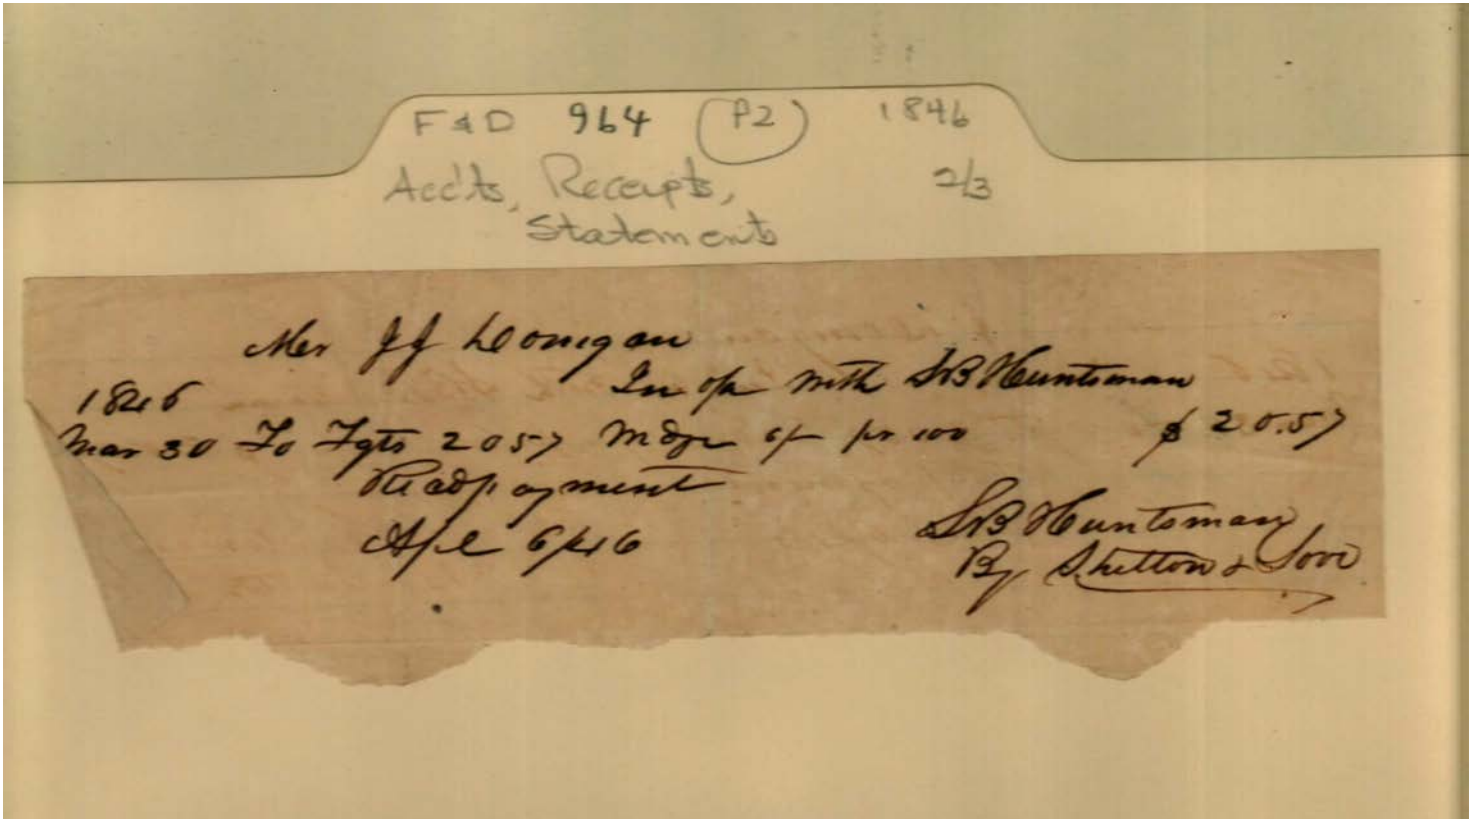 F & D 964 (P2) 1846
Acc'ts, Receipts, 2/3
Statements
Mr JJ Donigan
1846 In a/c with SB Huntsman
Mar 30 To Fgts 2057 Mdze pr 100 $ 20.57
Recd payment
Apl 6/46
SB Huntsman
By Shelton &